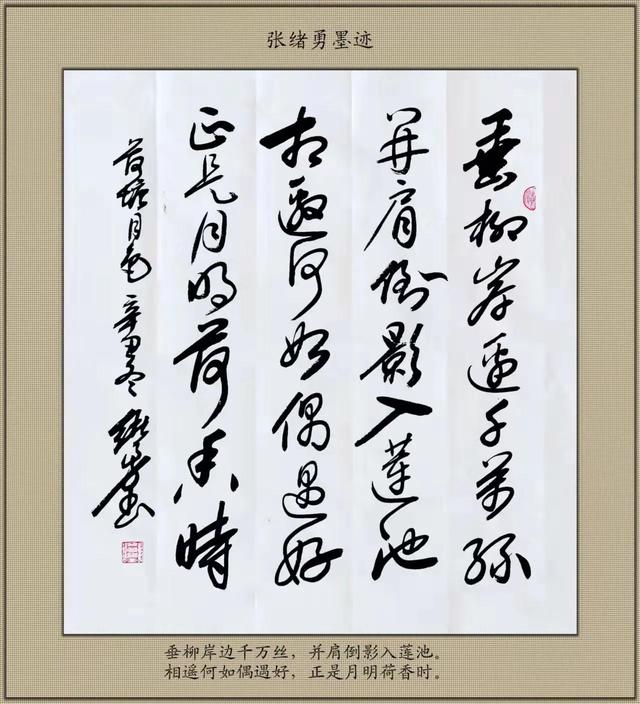 张绪勇墨迹
垂柳岸邊千萬絲
并肩倒影入蓮池
相邀何如偶遇好
正是月明荷香時
荷塘月色 辛丑冬
垂柳岸边千万丝，并肩倒影入莲池。
相遥何如偶遇好，正是月明荷香时。